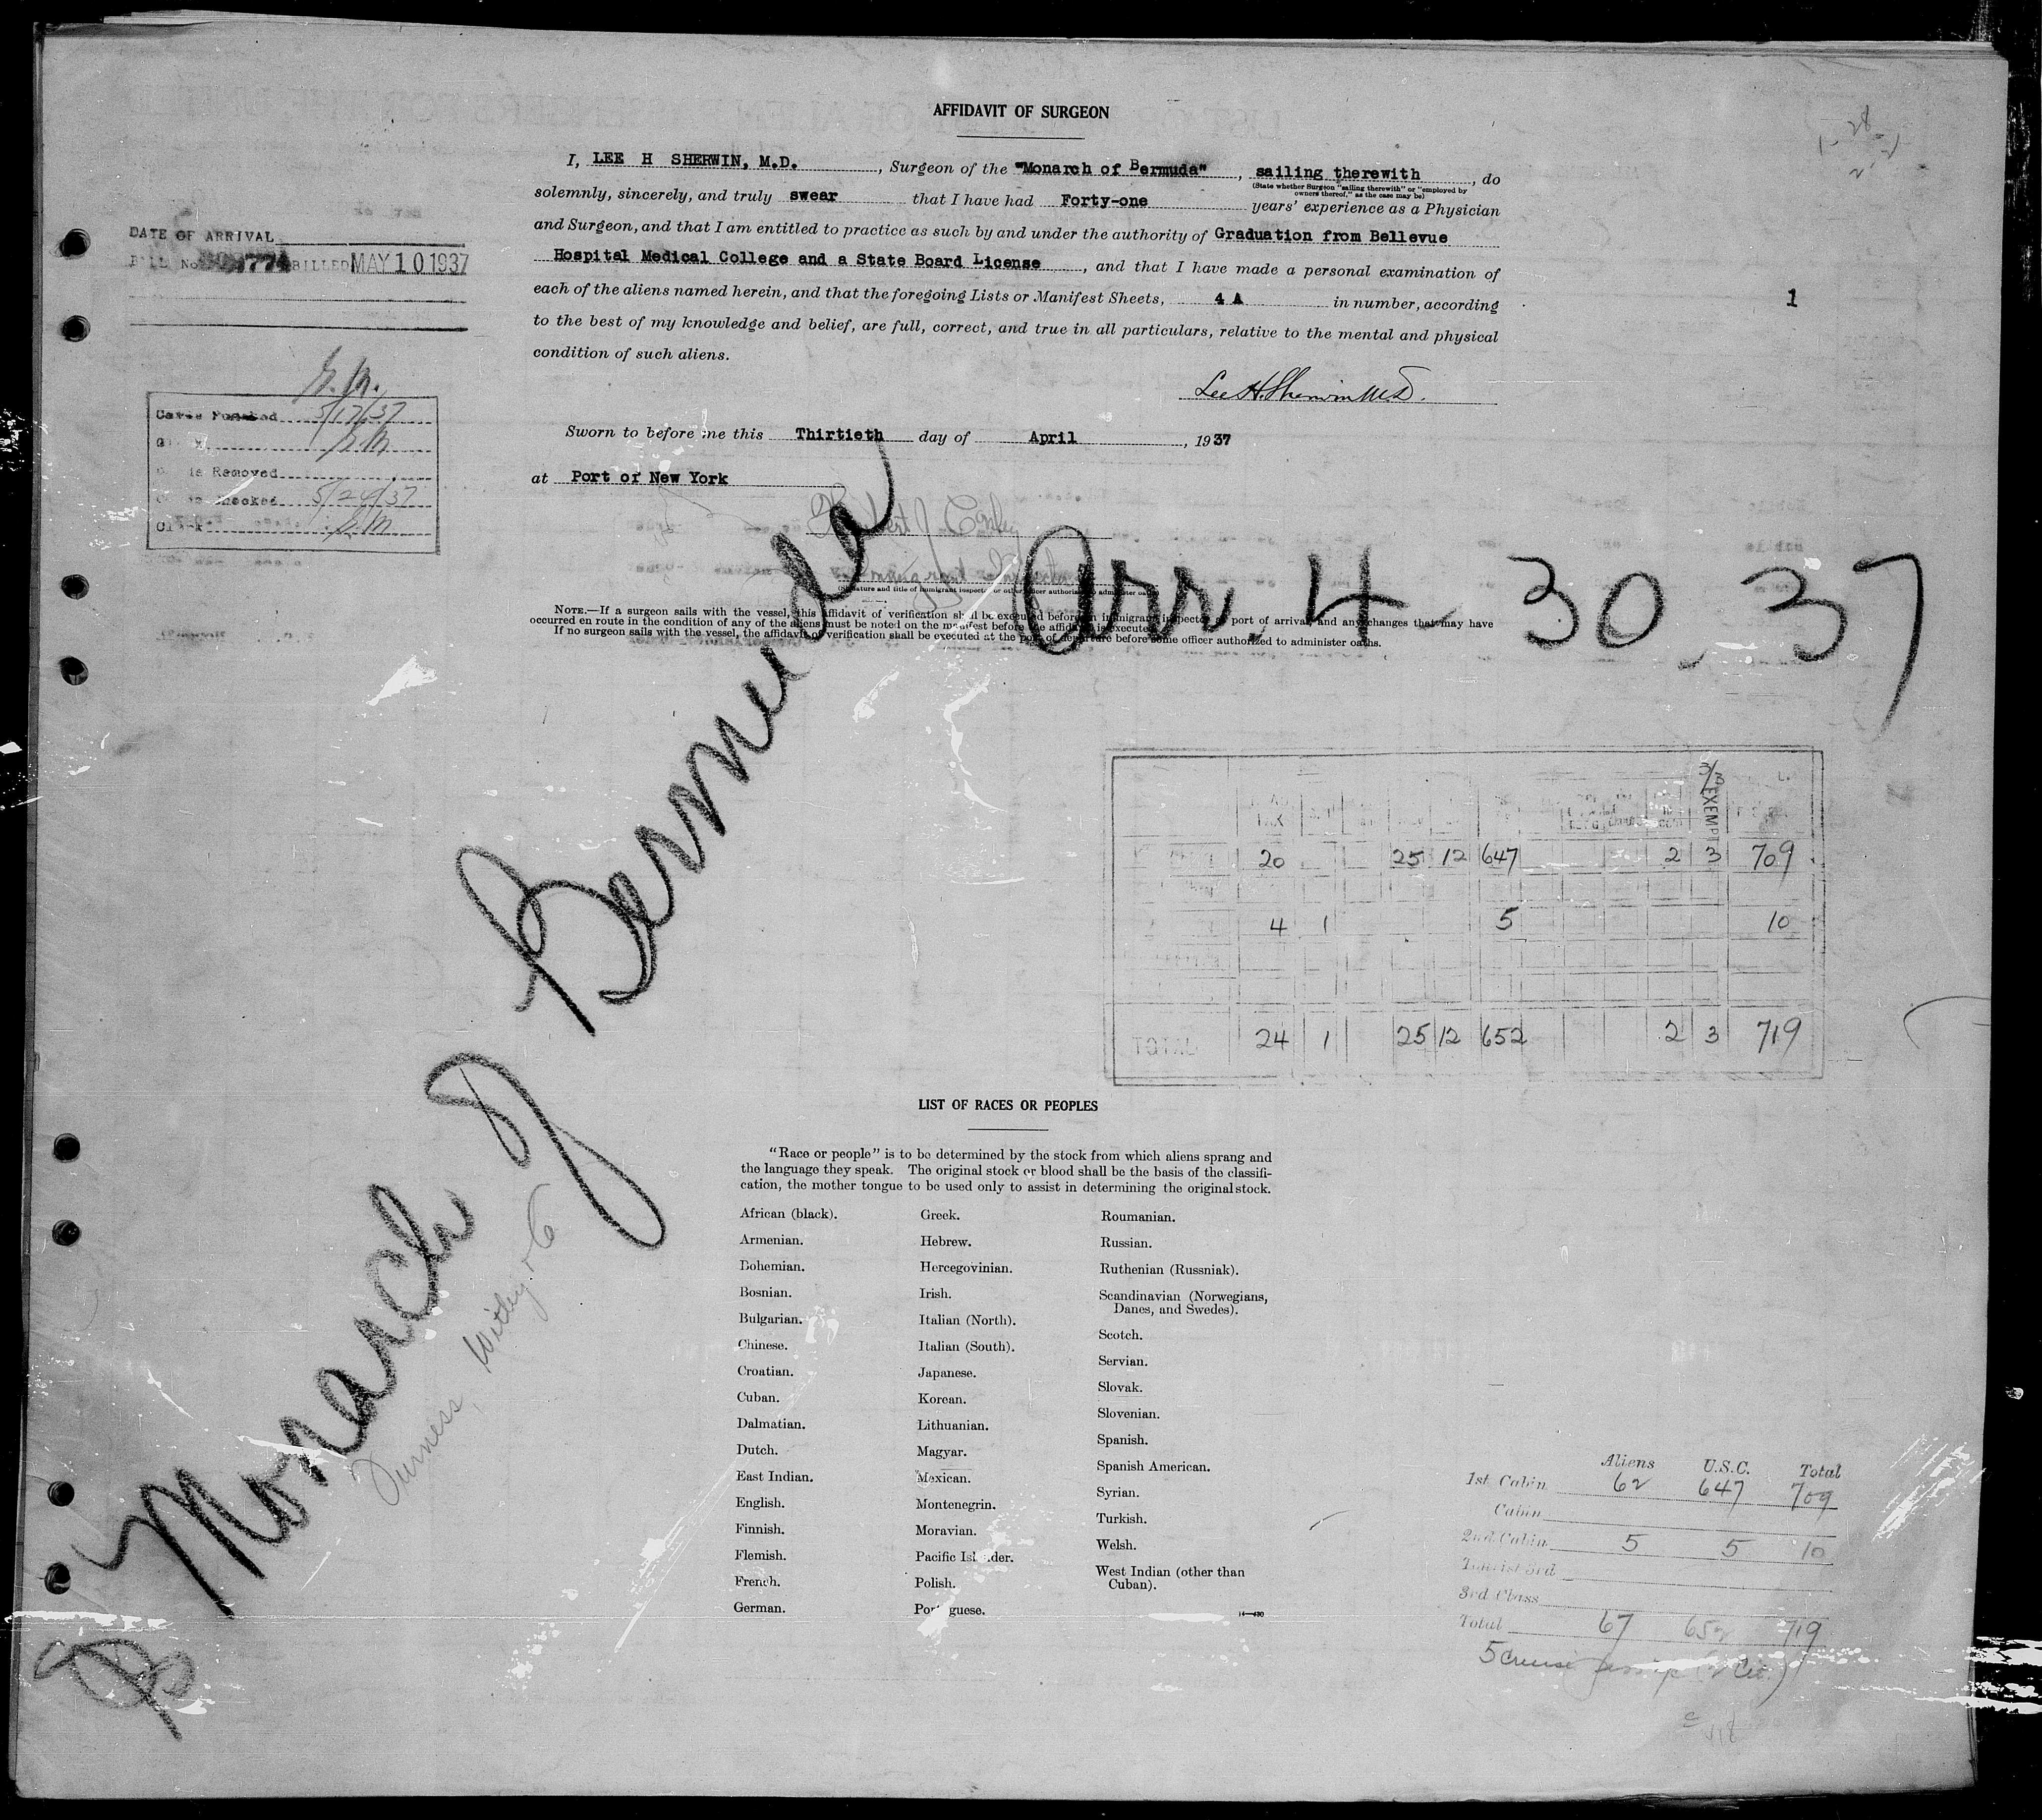 AFFIDAVIT OF SURGEON
I, LEE H SHERWIN, M.D. , Surgeon of the "Monarch of Bermuda" , sailing therewith , do
(State whether Surgeon "sailing therewith" or "employed by
owners thereof," as the case may be)
solemnly, sincerely, and truly swear that I have had Forty-one years' experience as a Physician
and Surgeon, and that I am entitled to practice as such by and under the authority of Graduation from Bellevue
Hospital Medical College and a State Board License , and that I have made a personal examination of
each of the aliens named herein, and that the foregoing Lists or Manifest Sheets, 4 A in number, according
to the best of my knowledge and belief, are full, correct, and true in all particulars, relative to the mental and physical
condition of such aliens.
Lee H. Sherwin M.D.
Sworn to before me this Thirtieth day of April , 1937
at Port of New York
(Signature and title of immigrant inspector or other officer authorized to administer oaths)
NOTE.—If a surgeon sails with the vessel, this affidavit of verification shall be executed before an immigrant inspector at port of arrival and any changes that may have
occurred en route in the condition of any of the aliens must be noted on the manifest before the affidavit is executed.
If no surgeon sails with the vessel, the affidavit of verification shall be executed at the port of departure before some officer authorized to administer oaths.
DATE OF ARRIVAL
BILL No. BILLED MAY 10 1937
1
5/17/37
Removed
5/24/37
Monarch of Bermuda
Arr. 4-30.37
Furness, Withy & Co
TAX EXEMPT
20 25 12 647 2 3 709
4 1 5 10
TOTAL 24 1 25 12 652 2 3 719
LIST OF RACES OR PEOPLES
"Race or people" is to be determined by the stock from which aliens sprang and
the language they speak. The original stock or blood shall be the basis of the classifi-
cation, the mother tongue to be used only to assist in determining the original stock.
African (black).
Armenian.
Bohemian.
Bosnian.
Bulgarian.
Chinese.
Croatian.
Cuban.
Dalmatian.
Dutch.
East Indian.
English.
Finnish.
Flemish.
French.
German.
Greek.
Hebrew.
Hercegovinian.
Irish.
Italian (North).
Italian (South).
Japanese.
Korean.
Lithuanian.
Magyar.
Mexican.
Montenegrin.
Moravian.
Pacific Islander.
Polish.
Portuguese.
Roumanian.
Russian.
Ruthenian (Russniak).
Scandinavian (Norwegians,
Danes, and Swedes).
Scotch.
Servian.
Slovak.
Slovenian.
Spanish.
Spanish American.
Syrian.
Turkish.
Welsh.
West Indian (other than
Cuban).
Aliens U.S.C. Total
1st Cabin 62 647 709
Cabin
2nd Cabin 5 5 10
Tourist 3rd
3rd Class
Total 67 652 719
5 cruise